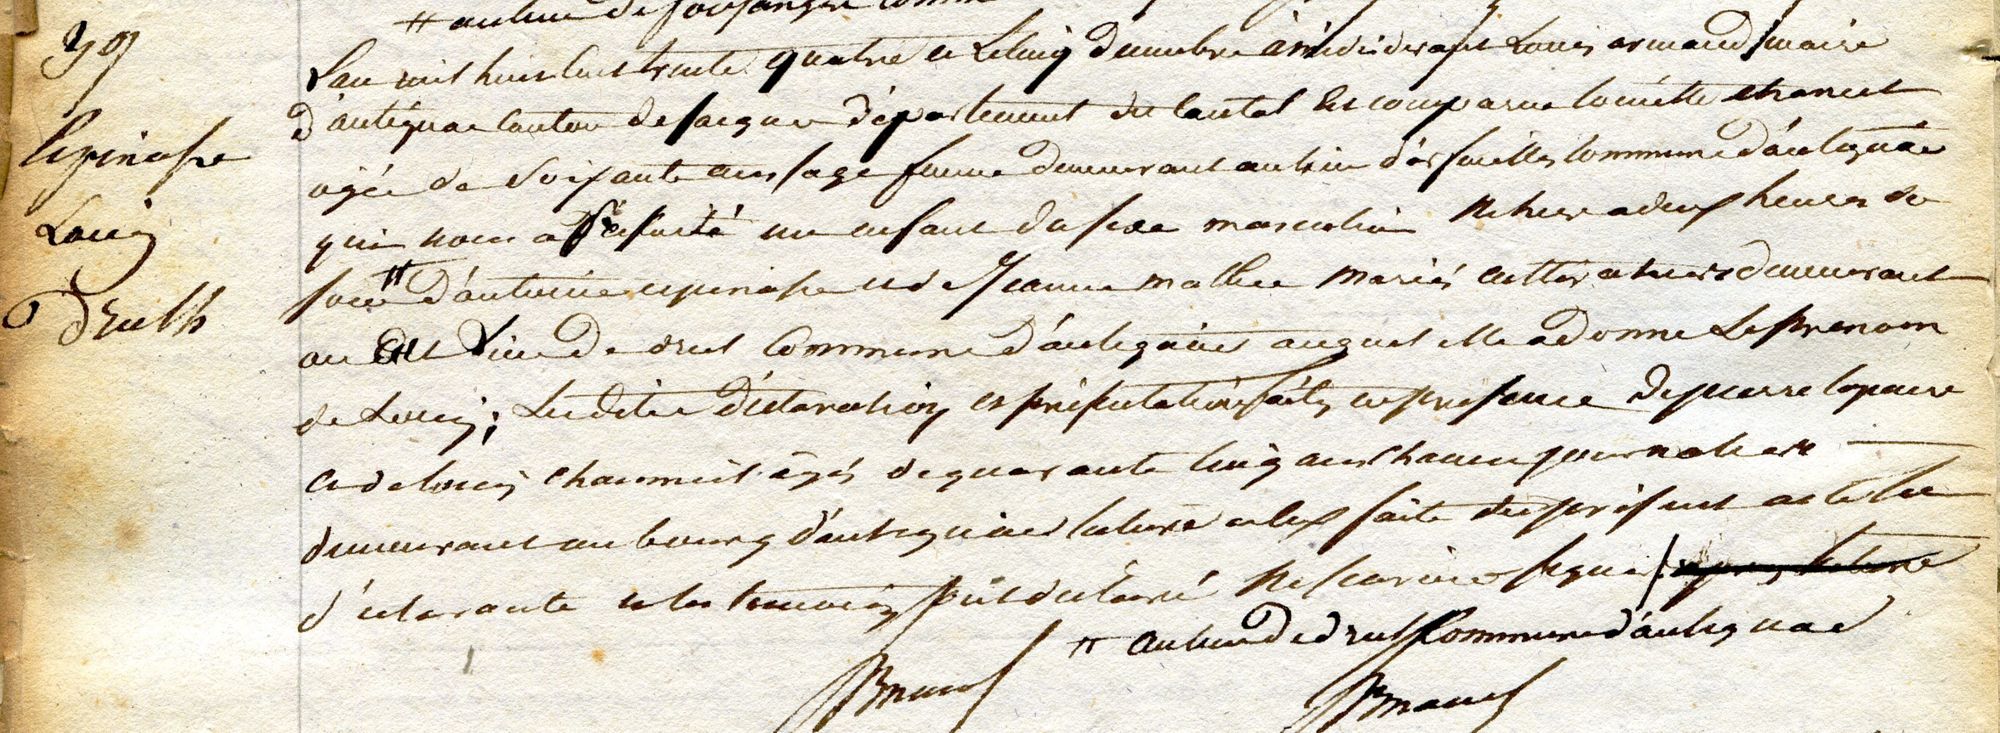 39
Espinasse
Louis
Druth
L'an mil huit cent trente quatre et le cinq décembre à midi devant Louis armand maire
d'antignac canton de saignes département du cantal Est comparue
agée de soixante ans sage femme demeurant au lieu commune d'antignac
qui nous a présenté un enfant du sexe masculin né hier a deux heures de
soir d'antoine espinasse et de Jeanne mathieu mariés cultivateurs demeurant
au dit lieu de drut Commune d'antignac auquel elle a donné Le prénom
de Louis; Les dites déclaration et présentation faites en présence de pierre
et de Louis agés de quarante cinq ans chacun journaliers
demeurant au bourg d'antignac lecture a eux faite du présent acte la
déclarante et les temoins ont déclaré ne savoir signer
au lieu de drut Commune d'antignac